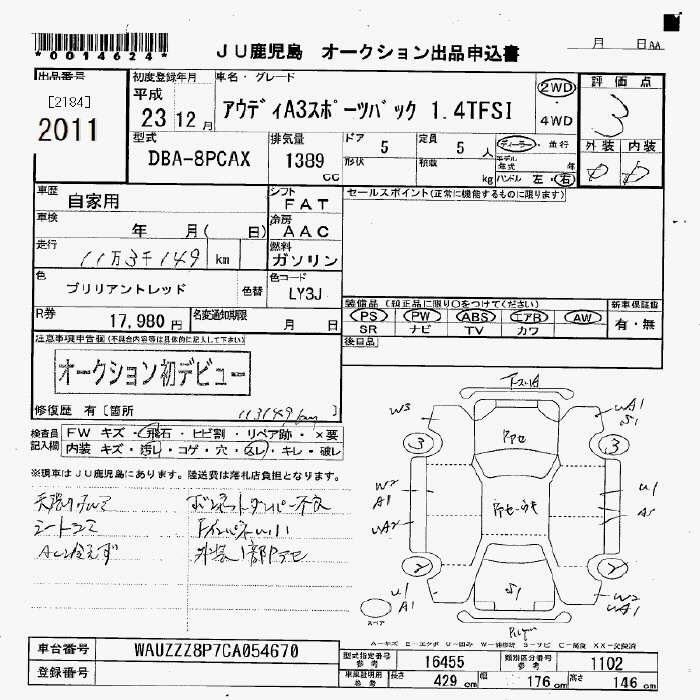 *0014624*
JU鹿児島 オークション出品申込書
月 日 AA
出品番号
[2184]
2011
初度登録年月
平成
23 12 月
車名・グレード
アウディA3スポーツバック 1.4TFSI
2WD
・
4WD
評価点
3
型式
DBA-8PCAX
排気量
1389
cc
ドア 5
形状
定員 5 人
積載 kg
ディーラー ・ 並行
モデル年式 年
ハンドル 左・右
外装 内装
車歴
自家用
シフト
FAT
セールスポイント(正常に機能するものに限ります)
車検
年 月 ( 日)
冷房
AAC
走行
11万3千149 km
燃料
ガソリン
色
ブリリアントレッド
色替
色コード
LY3J
装備品 (純正品に限り○をつけてください)
新車保証書
PS PW ABS エアB AW
SR ナビ TV カワ
有・無
R券
17,980 円
名変通知期限
月 日
後日品
注意事項申告欄(不具合内容等は具体的に記入して下さい)
オークション初デビュー
修復歴 有 [箇所
113149km
検査員記入欄
FW キズ・飛石・ヒビ割・リペア跡・×要
内装 キズ・汚レ・コゲ・穴・スレ・キレ・破レ
※現車はJU鹿児島にあります。陸送費は落札店負担となります。
ボンネットダンパー不良
W3
WA1
S1
3
3
W2
A1
WA2
U1
2
2
U1
A1
S1
W2
WA1
スペア
A-キズ E-エクボ U-凹み W-補修跡 S-サビ C-腐食 XX-交換済
車台番号
WAUZZZ8P7CA054670
登録番号
型式指定番号
参考
16455
類別区分番号
参考
1102
車庫証明用
参考
長さ 429 cm 幅 176 cm 高さ 146 cm